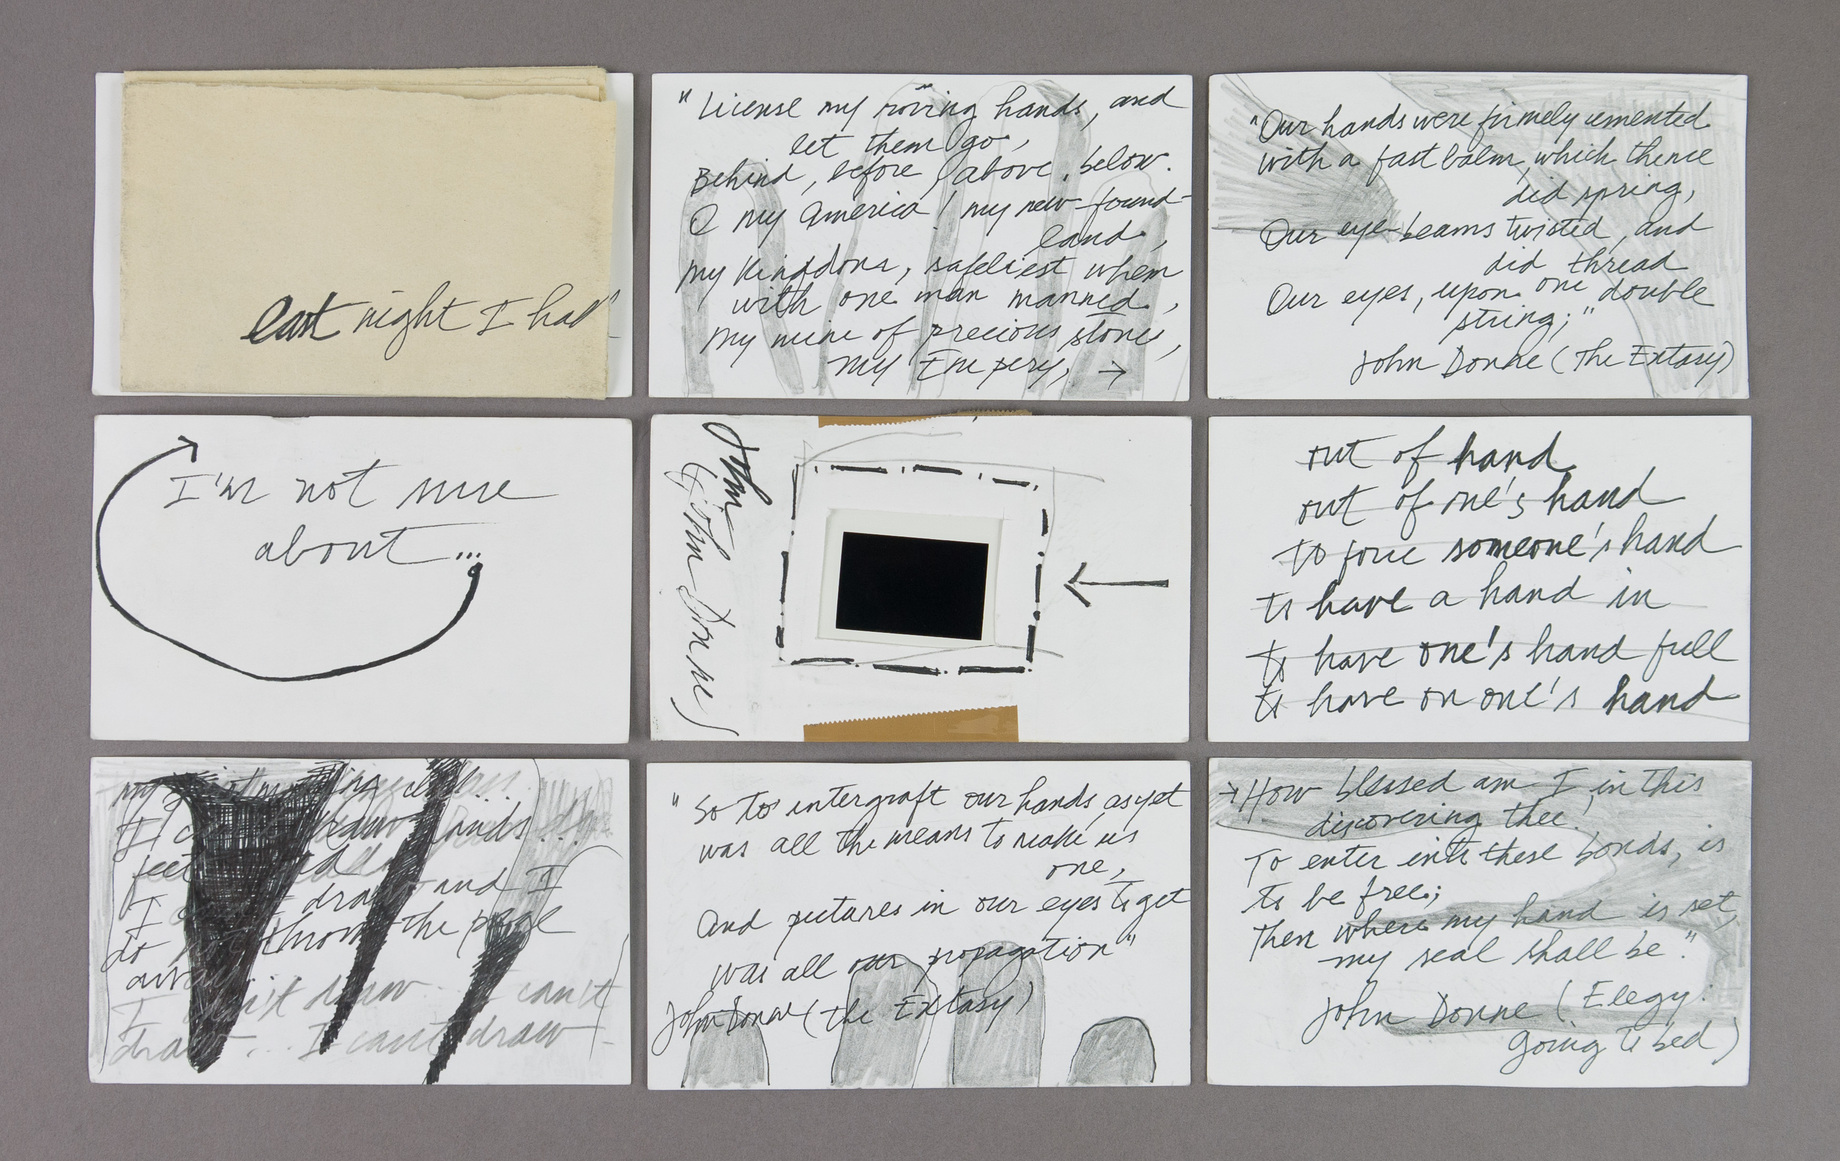 last night I had
"License my roving hands, and
let them go,
Behind, before, above, below.
O my America! my new-found-
land,
My Kingdom, safeliest when
with one man manned,
My mine of precious stones,
My Empery, →
"Our hands were firmely cemented
with a fast balm, which thence
did spring,
Our eye-beams twisted, and
did thread
Our eyes, upon one double
string;"
John Donne (The Extasy)
I'm not sure
about...
John
(John Donne)
out of hand
out of one's hand
to force someone's hand
to have a hand in
to have one's hand full
to have on one's hand
my
I can't draw hands...
feet
I can't draw and I
do not throw the page
away...
I can't draw... I can't
draw... I can't draw
"So to intergraft our hands, as yet
was all the means to make us
one,
And pictures in our eyes to get
was all our propagation"
John Donne (The Extasy)
→How blessed am I in this
discovering thee!
To enter into these bonds, is
to be free;
Then where my hand is set,
my seal shall be."
John Donne (Elegy:
Going to bed)